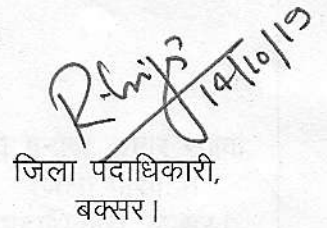 14/10/19
जिला पदाधिकारी,
बक्सर।